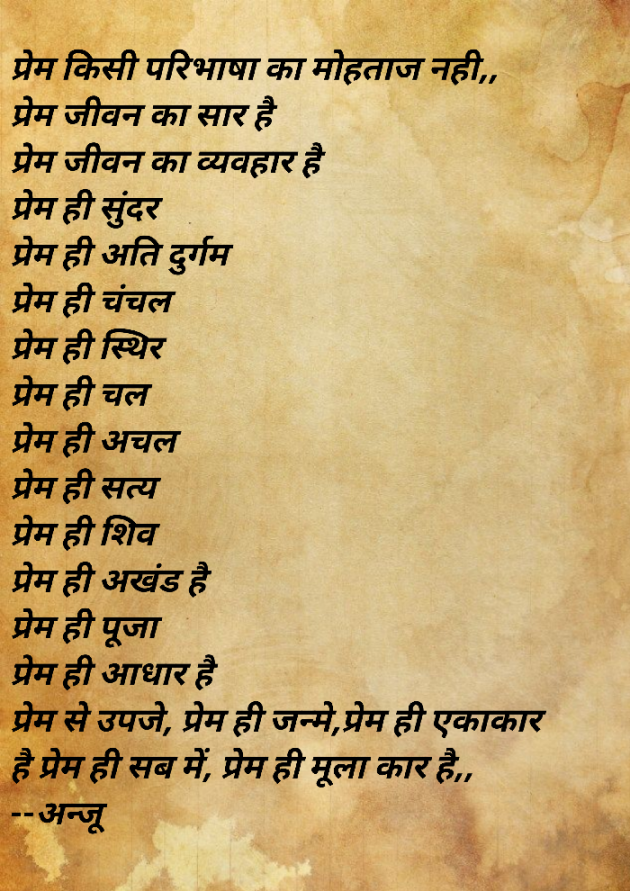 प्रेम किसी परिभाषा का मोहताज नही,,
प्रेम जीवन का सार है
प्रेम जीवन का व्यवहार है
प्रेम ही सुंदर
प्रेम ही अति दुर्गम
प्रेम ही चंचल
प्रेम ही स्थिर
प्रेम ही चल
प्रेम ही अचल
प्रेम ही सत्य
प्रेम ही शिव
प्रेम ही अखंड है
प्रेम ही पूजा
प्रेम ही आधार है
प्रेम से उपजे, प्रेम ही जन्मे,प्रेम ही एकाकार
है प्रेम ही सब में, प्रेम ही मूला कार है,,
--अन्जू